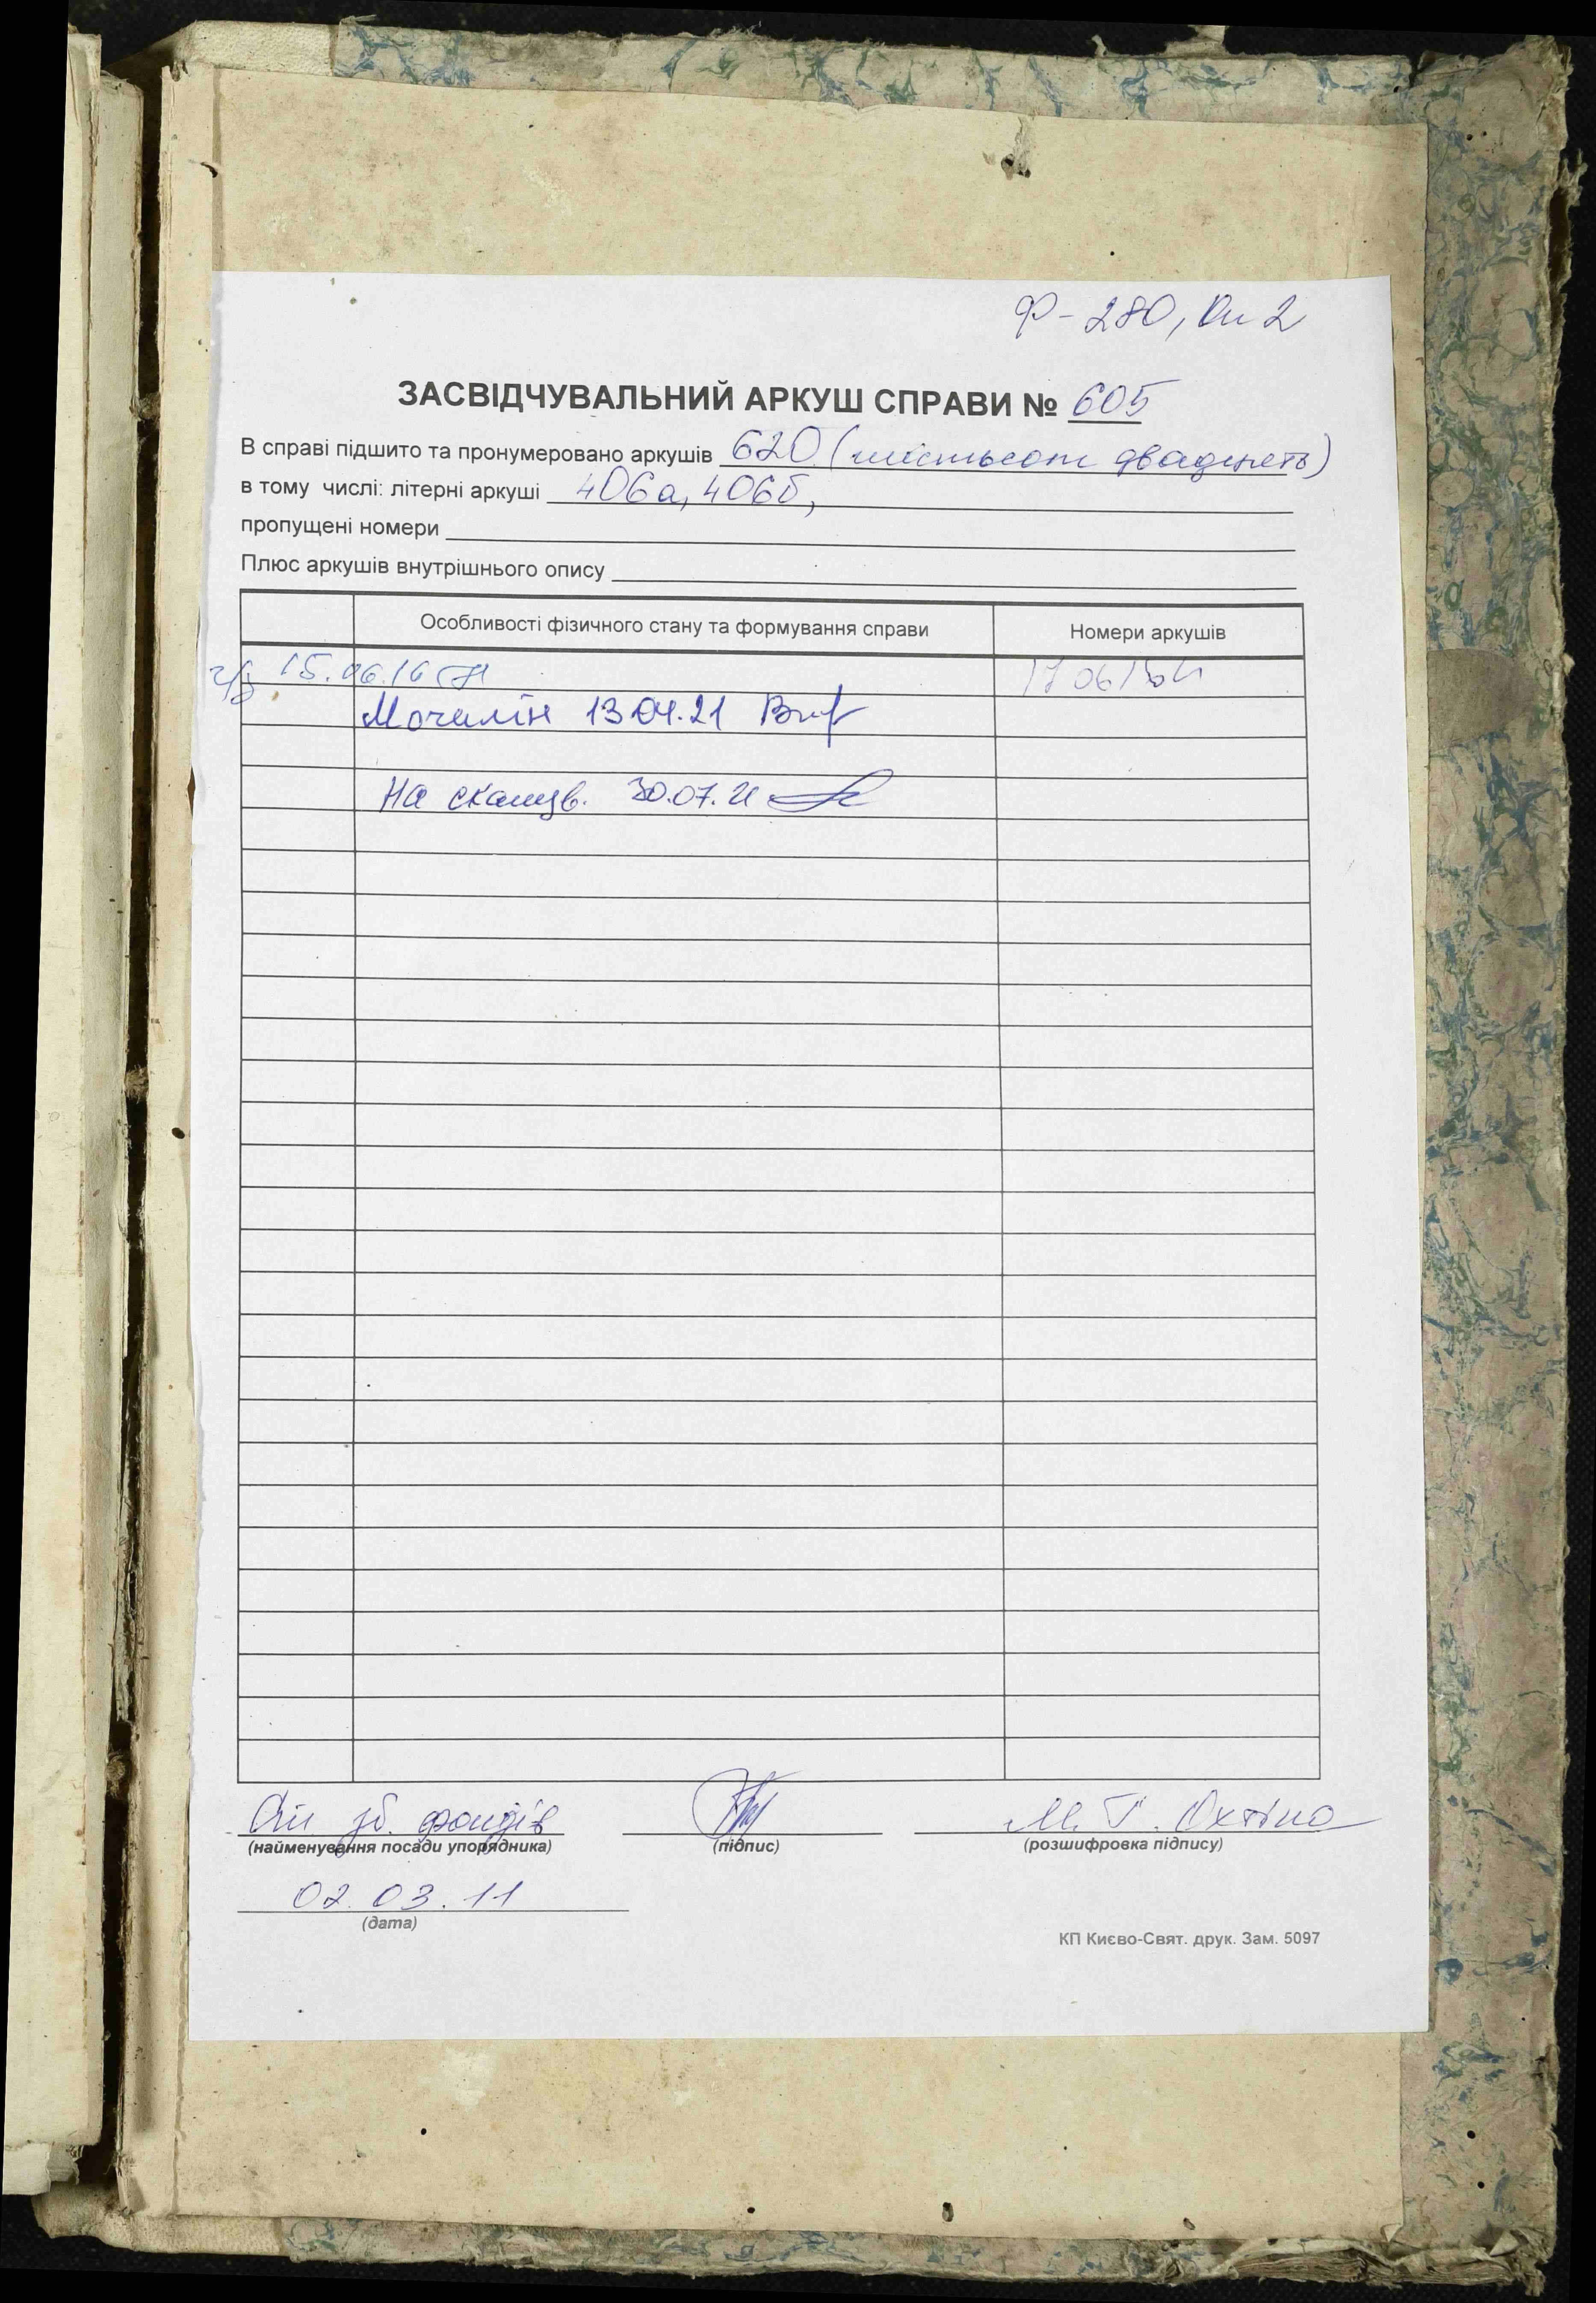 Ф-280, Оп 2
ЗАСВІДЧУВАЛЬНИЙ АРКУШ СПРАВИ № 605
В справі підшито та пронумеровано аркушів 620 (шістьсот двадцять)
в тому числі: літерні аркуші 406а, 406б,
пропущені номери
Плюс аркушів внутрішнього опису
Особливості фізичного стану та формування справи Номери аркушів
15.06.16
Мочалін 13.04.21
На сканув. 30.07.21
зб. фондів М. Г. Охтіна
(найменування посади упорядника) (підпис) (розшифровка підпису)
02.03.11
(дата)
КП Києво-Свят. друк. Зам. 5097